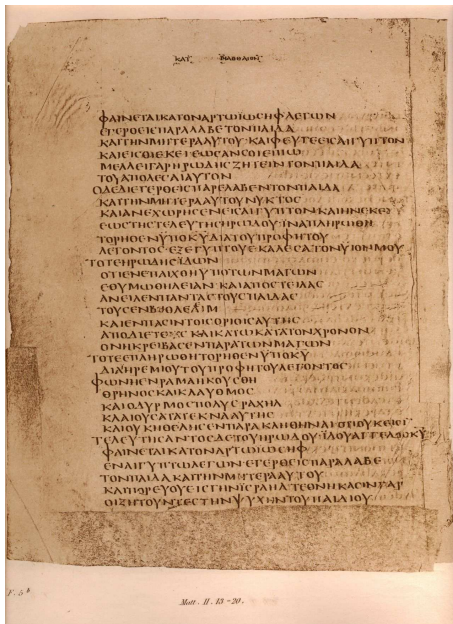 ΚΑΤ ΜΑΘΘΑΙΟΝ
ΦΑΙΝΕΤΑΙΚΑΤΟΝΑΡΤΩΙΩΣΗΦΛΕΓΩΝ
ΕΓΕΡΘΕΙΣΠΑΡΑΛΑΒΕΤΟΝΠΑΙΔΑ
ΚΑΙΤΗΝΜΗΤΕΡΑΑΥΤΟΥ·ΚΑΙΦΕΥΓΕΕΙΣΑΙΓΥΠΤΟΝ
ΚΑΙΕΙΣΘΙΕΚΕΙΕΩΣΑΝΣΟΙΕΙΠΩ
ΜΕΛΛΕΙΓΑΡΗΡΩΔΗΣΖΗΤΕΙΝΤΟΝΠΑΙΔΑ
ΤΟΥΑΠΟΛΕΣΑΙΑΥΤΟΝ
ΟΔΕΔΙΕΓΕΡΘΕΙΣΠΑΡΕΛΑΒΕΝΤΟΝΠΑΙΔΑ
ΚΑΙΤΗΝΜΗΤΕΡΑΑΥΤΟΥΝΥΚΤΟΣ
ΚΑΙΑΝΕΧΩΡΗΣΕΝΕΙΣΑΙΓΥΠΤΟΝΚΑΙΗΝΕΚΕΙ
ΕΩΣΤΗΣΤΕΛΕΥΤΗΣΗΡΩΔΟΥΙΝΑΠΛΗΡΩΘΗ
ΤΟΡΗΘΕΝΥΠΟΚΥΔΙΑΤΟΥΠΡΟΦΗΤΟΥ
ΛΕΓΟΝΤΟΣ·ΕΞΕΓΥΠΤΟΥΕΚΑΛΕΣΑΤΟΝΥΙΟΝΜΟΥ
ΤΟΤΕΗΡΩΔΗΣΪΔΩΝ
ΟΤΙΕΝΕΠΑΙΧΘΗΥΠΟΤΩΝΜΑΓΩΝ
ΕΘΥΜΩΘΗΛΕΙΑΝ·ΚΑΙΑΠΟΣΤΕΙΛΑΣ
ΑΝΕΙΛΕΝΠΑΝΤΑΣΤΟΥΣΠΑΙΔΑΣ
ΤΟΥΣΕΝΒΗΘΛΕΕΙΜ
ΚΑΙΕΝΠΑΣΙΝΤΟΙΣΟΡΙΟΙΣΑΥΤΗΣ
ΑΠΟΔΙΕΤΕΙΣΚΑΙΚΑΤΩΚΑΤΑΤΟΝΧΡΟΝΟΝ
ΟΝΗΚΡΕΙΒΑΣΕΝΠΑΡΑΤΩΝΜΑΓΩΝ
ΤΟΤΕΕΠΛΗΡΩΘΗΤΟΡΗΘΕΝΥΠΟΚΥ
ΔΙΑΪΗΡΕΜΙΟΥΤΟΥΠΡΟΦΗΤΟΥΛΕΓΟΝΤΟΣ
ΦΩΝΗΕΝΡΑΜΑΗΚΟΥΣΘΗ
ΘΡΗΝΟΣΚΑΙΚΛΑΥΘΜΟΣ
ΚΑΙΟΔΥΡΜΟΣΠΟΛΥΣΡΑΧΗΛ
ΚΛΑΙΟΥΣΑΤΑΤΕΚΝΑΑΥΤΗΣ
ΚΑΙΟΥΚΗΘΕΛΗΣΕΝΠΑΡΑΚΛΗΘΗΝΑΙΟΤΙΟΥΚΕΙΣΙ
ΤΕΛΕΥΤΗΣΑΝΤΟΣΔΕΤΟΥΗΡΩΔΟΥ·ΪΔΟΥΑΓΓΕΛΟΣΚΥ
ΦΑΙΝΕΤΑΙΚΑΤΟΝΑΡΤΩΙΩΣΗΦ
ΕΝΑΙΓΥΠΤΩΛΕΓΩΝ·ΕΓΕΡΘΕΙΣΠΑΡΑΛΑΒΕ
ΤΟΝΠΑΙΔΑΚΑΙΤΗΝΜΗΤΕΡΑΑΥΤΟΥ
ΚΑΙΠΟΡΕΥΟΥΕΙΣΓΗΝΙΣΡΑΗΛΤΕΘΝΗΚΑΣΙΝΓΑΡ
ΟΙΖΗΤΟΥΝΤΕΣΤΗΝΨΥΧΗΝΤΟΥΠΑΙΔΙΟΥ
F. 5 b
Matt. II. 13-20.